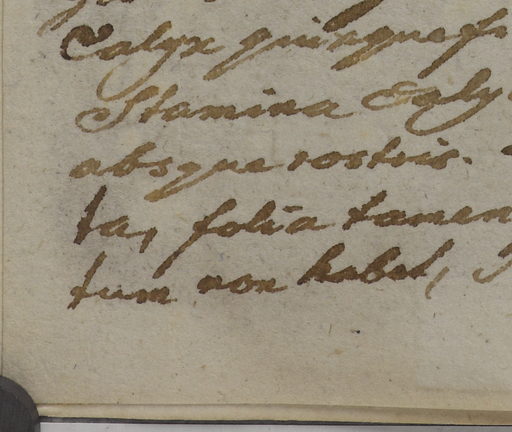 Calyx quinquef
Stamina Caly
absque rostris.
ta, folia tamen
tum non habet,